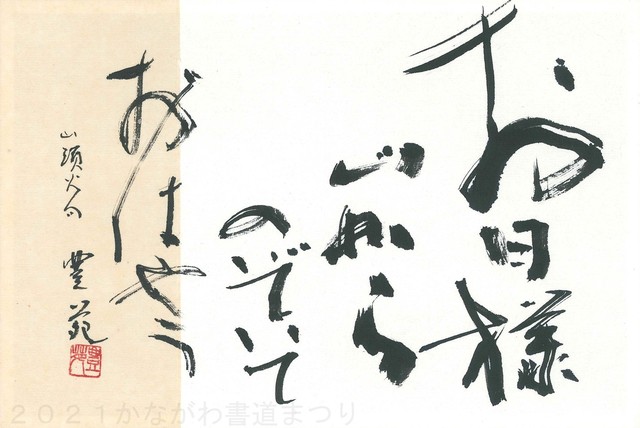 お日様
山から
のぞいて
おはやう
山頭火句
豊苑
2021かながわ書道まつり